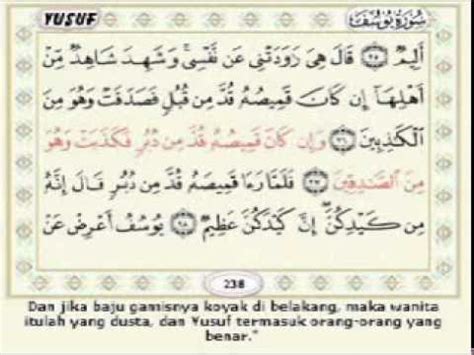 YUSUF سُورَةُ يُوسُفَ
أَلِيمٌ ﴿٢٥﴾ قَالَ هِىَ رَٰوَدَتْنِى عَن نَّفْسِى ۚ وَشَهِدَ شَاهِدٌ مِّنْ
أَهْلِهَآ إِن كَانَ قَمِيصُهُۥ قُدَّ مِن قُبُلٍ فَصَدَقَتْ وَهُوَ مِنَ
ٱلْكَٰذِبِينَ ﴿٢٦﴾ وَإِن كَانَ قَمِيصُهُۥ قُدَّ مِن دُبُرٍ فَكَذَبَتْ وَهُوَ
مِنَ ٱلصَّٰدِقِينَ ﴿٢٧﴾ فَلَمَّا رَءَا قَمِيصَهُۥ قُدَّ مِن دُبُرٍ قَالَ إِنَّهُۥ
مِن كَيْدِكُنَّ ۖ إِنَّ كَيْدَكُنَّ عَظِيمٌ ﴿٢٨﴾ يُوسُفُ أَعْرِضْ عَنْ
238
Dan jika baju gamisnya koyak di belakang, maka wanita
itulah yang dusta, dan Yusuf termasuk orang-orang yang
benar."